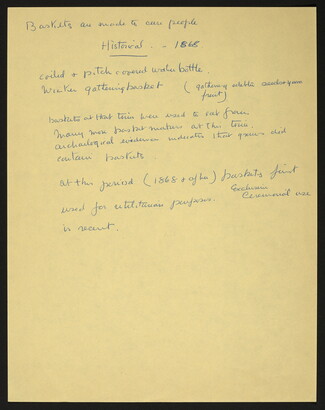 Baskets are made to own people
Historical - 1868
coiled + pitch covered water bottle.
Wicker gathering basket (gathering edible seeds + yucca
fruit)
baskets at that time were used to eat from
many more basket makers at this time.
archaeological evidence indicates that graves did
contain baskets.
at this period (1868 + after) baskets first
used for utilitarian purposes. Exclusive
Ceremonial use
is recent.